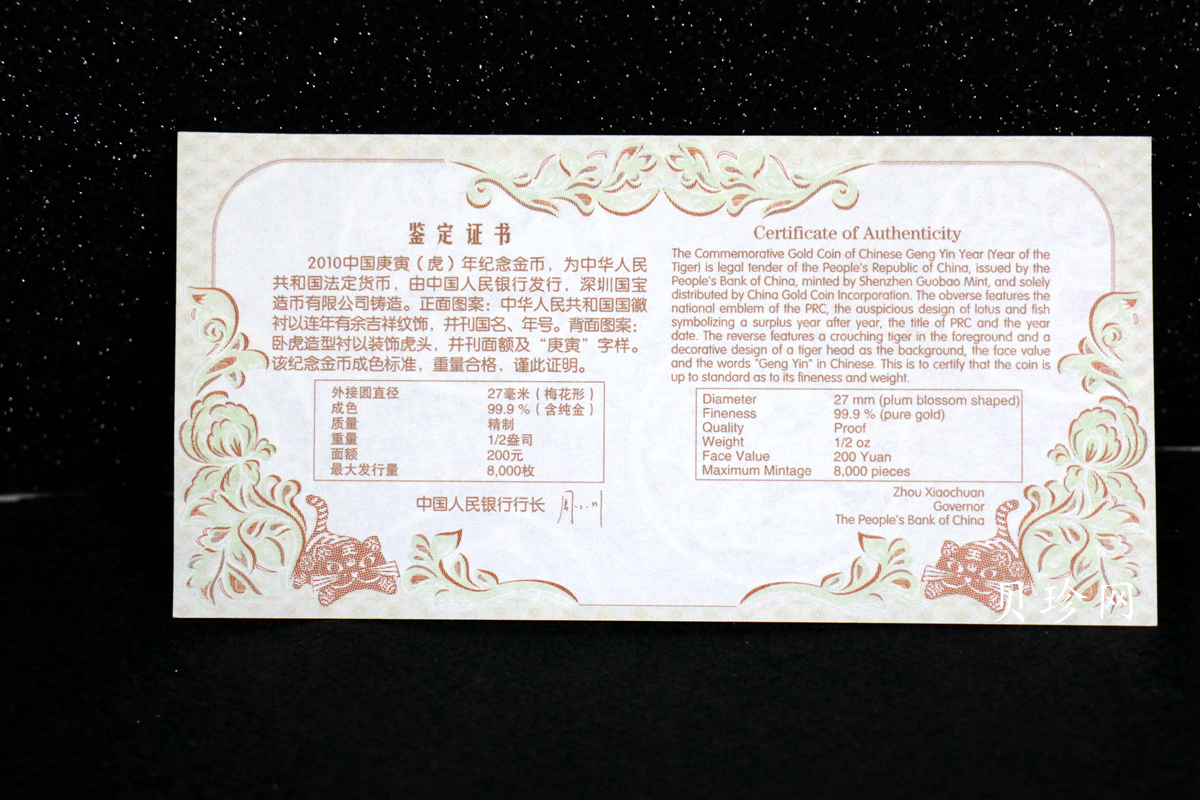 鉴定证书
2010中国庚寅（虎）年纪念金币，为中华人民
共和国法定货币，由中国人民银行发行，深圳国宝
造币有限公司铸造。正面图案：中华人民共和国国徽
衬以连年有余吉祥纹饰，并刊国名、年号。背面图案：
卧虎造型衬以装饰虎头，并刊面额及“庚寅”字样。
该纪念金币成色标准，重量合格，谨此证明。
外接圆直径 27毫米（梅花形）
成色 99.9 %（含纯金）
质量 精制
重量 1/2盎司
面额 200元
最大发行量 8,000枚
中国人民银行行长
Certificate of Authenticity
The Commemorative Gold Coin of Chinese Geng Yin Year (Year of the
Tiger) is legal tender of the People's Republic of China, issued by the
People's Bank of China, minted by Shenzhen Guobao Mint, and solely
distributed by China Gold Coin Incorporation. The obverse features the
national emblem of the PRC, the auspicious design of lotus and fish
symbolizing a surplus year after year, the title of PRC and the year
date. The reverse features a crouching tiger in the foreground and a
decorative design of a tiger head as the background, the face value
and the words "Geng Yin" in Chinese. This is to certify that the coin is
up to standard as to its fineness and weight.
Diameter 27 mm (plum blossom shaped)
Fineness 99.9 % (pure gold)
Quality Proof
Weight 1/2 oz
Face Value 200 Yuan
Maximum Mintage 8,000 pieces
Zhou Xiaochuan
Governor
The People's Bank of China
贝珍网